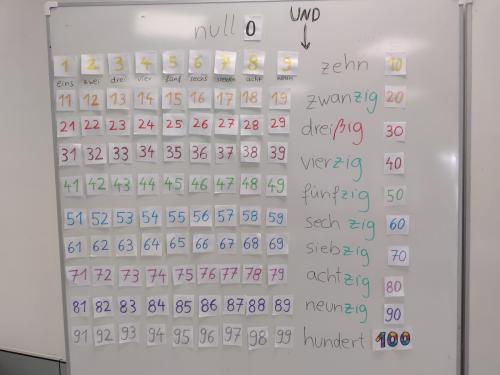 null 0 UND
1 2 3 4 5 6 7 8 9 zehn 10
eins zwei drei vier fünf sechs sieben acht neun
11 12 13 14 15 16 17 18 19 zwanzig 20
21 22 23 24 25 26 27 28 29 dreißig 30
31 32 33 34 35 36 37 38 39 vierzig 40
41 42 43 44 45 46 47 48 49 fünfzig 50
51 52 53 54 55 56 57 58 59 sechzig 60
61 62 63 64 65 66 67 68 69 siebzig 70
71 72 73 74 75 76 77 78 79 achtzig 80
81 82 83 84 85 86 87 88 89 neunzig 90
91 92 93 94 95 96 97 98 99 hundert 100